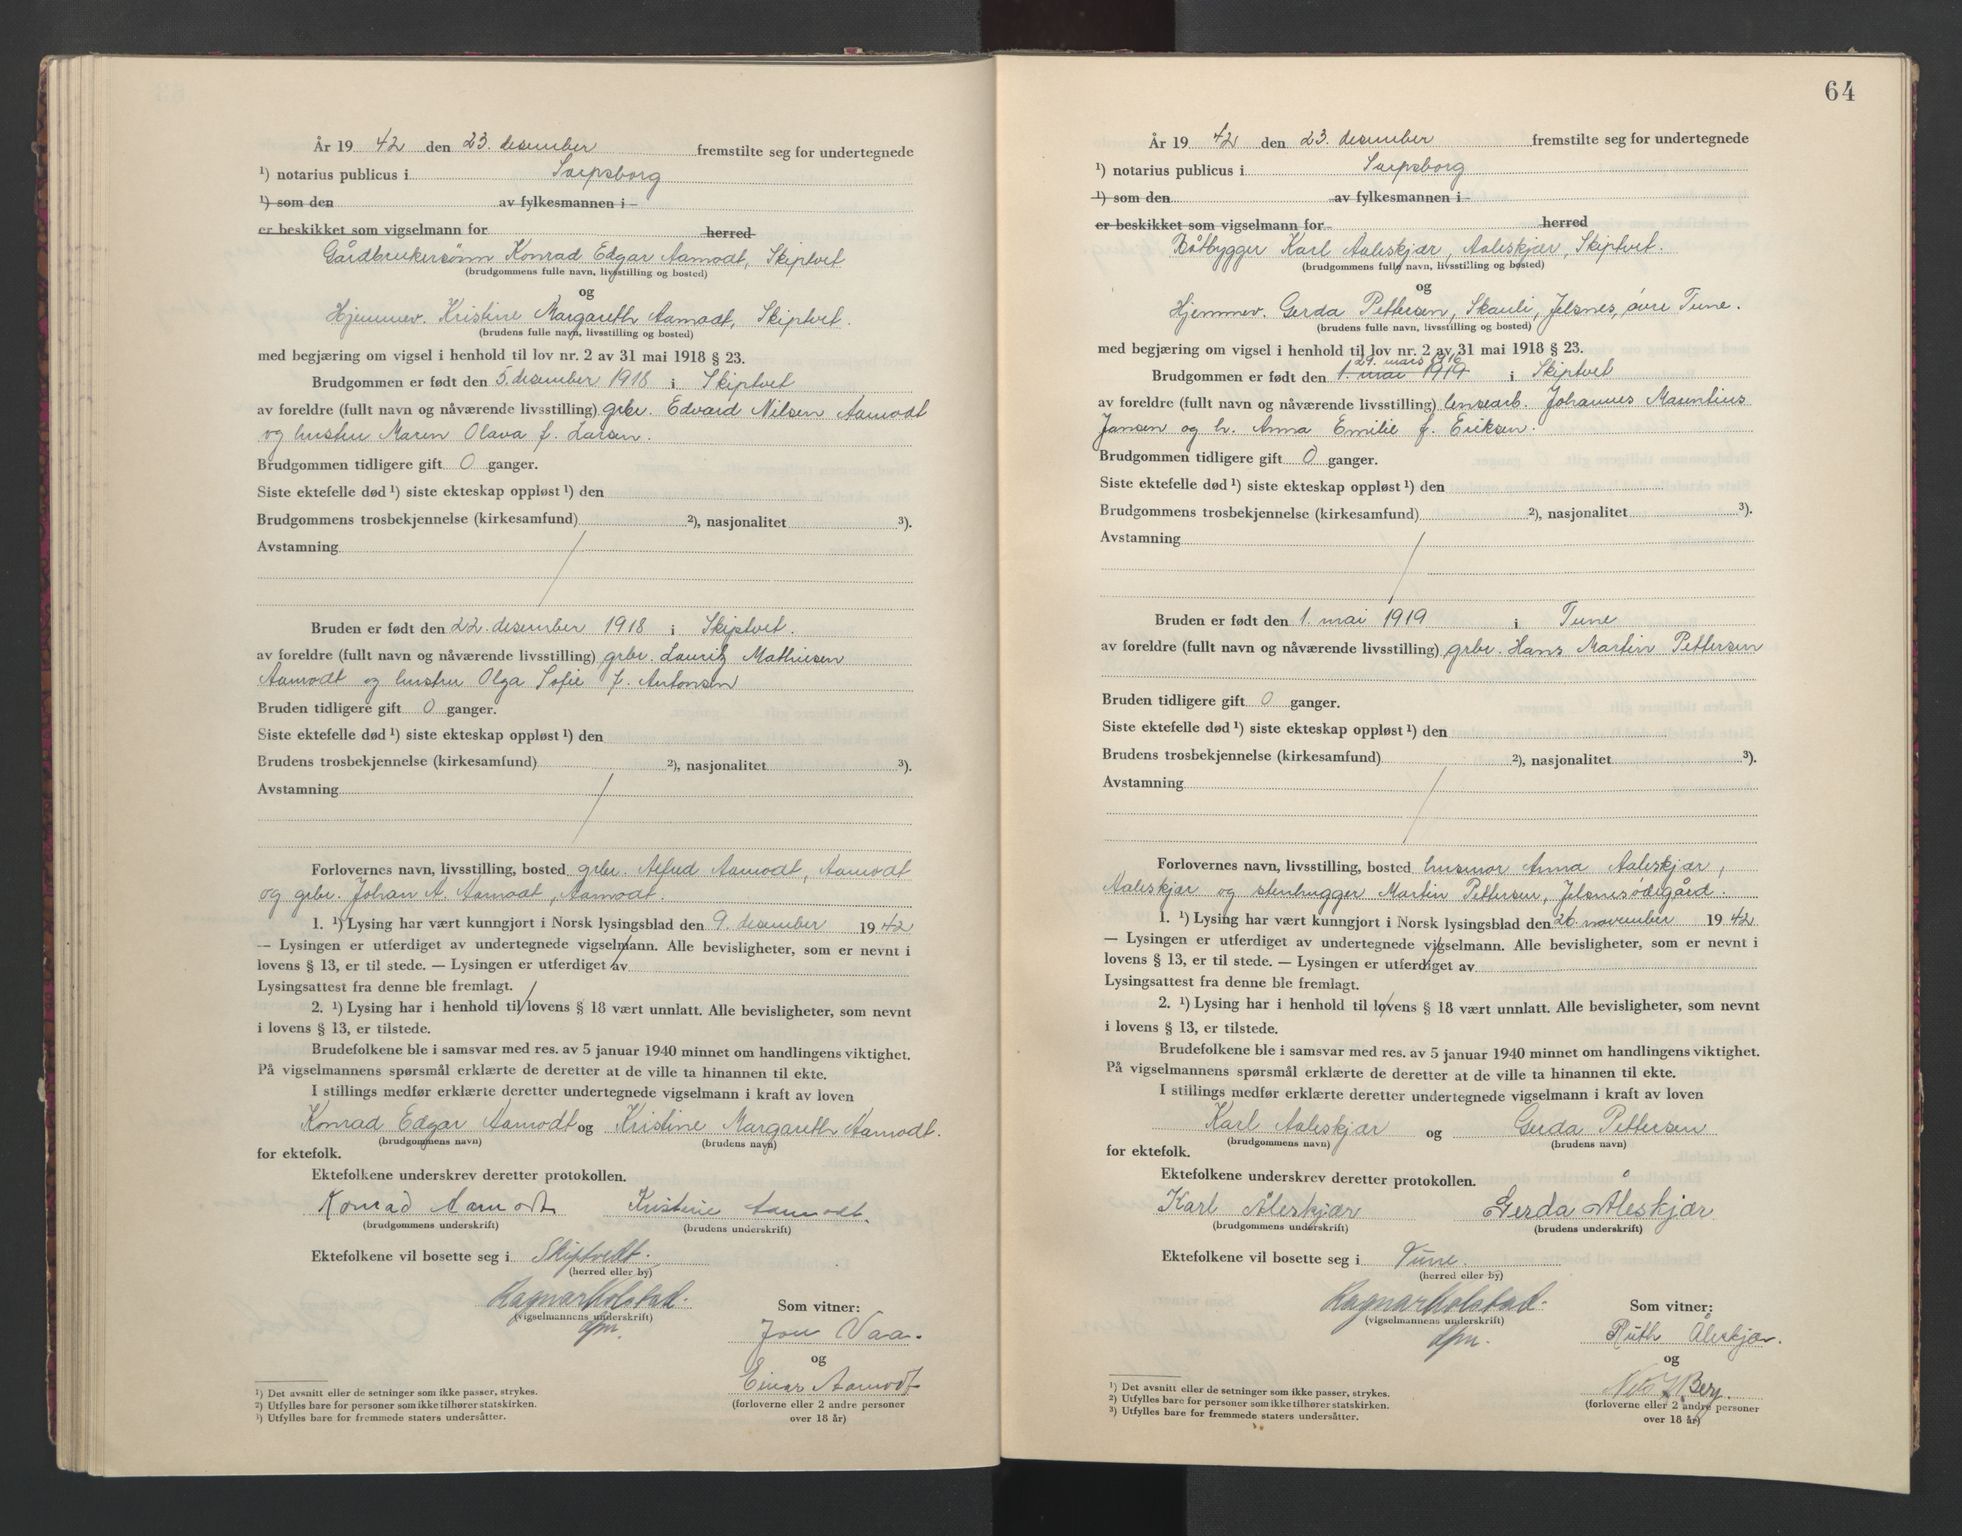 År 19 42 den 23. desember fremstilte seg for undertegnede
¹) notarius publicus i Sarpsborg
¹) som den av fylkesmannen i
er beskikket som vigselmann for herred
Gårdbrukersønn Konrad Edgar Aamodt, Skiptvet
(brudgommens fulle navn, livsstilling og bosted)
og
Hjemmev. Kristine Margareth Aamodt, Skiptvet.
(brudens fulle navn, livsstilling og bosted)
med begjæring om vigsel i henhold til lov nr. 2 av 31 mai 1918 § 23.
Brudgommen er født den 5. desember 1918 i Skiptvet
av foreldre (fullt navn og nåværende livsstilling) grbr. Edvard Nilsen Aamodt
og hustru Maren Olava f. Larsen.
Brudgommen tidligere gift 0 ganger.
Siste ektefelle død ¹) siste ekteskap oppløst ¹) den
Brudgommens trosbekjennelse (kirkesamfund) ²), nasjonalitet ³).
Avstamning
Bruden er født den 22. desember 1918 i Skiptvet.
av foreldre (fullt navn og nåværende livsstilling) grbr. Lauritz Mathiesen
Aamodt og hustru Olga Sofie f. Antonsen
Bruden tidligere gift 0 ganger.
Siste ektefelle død ¹) siste ekteskap oppløst ¹) den
Brudens trosbekjennelse (kirkesamfund) ²), nasjonalitet ³).
Avstamning
Forlovernes navn, livsstilling, bosted grbr. Alfred Aamodt, Aamodt
og grbr. Johan A. Aamodt, Aamodt.
1. ¹) Lysing har vært kunngjort i Norsk lysingsblad den 9. desember 19 42
— Lysingen er utferdiget av undertegnede vigselmann. Alle bevisligheter, som er nevnt i
lovens § 13, er til stede. — Lysingen er utferdiget av
Lysingsattest fra denne ble fremlagt.
2. ¹) Lysing har i henhold til lovens § 18 vært unnlatt. Alle bevisligheter, som nevnt
i lovens § 13, er tilstede.
Brudefolkene ble i samsvar med res. av 5 januar 1940 minnet om handlingens viktighet.
På vigselmannens spørsmål erklærte de deretter at de ville ta hinannen til ekte.
I stillings medfør erklærte deretter undertegnede vigselmann i kraft av loven
Konrad Edgar Aamodt og Kristine Margareth Aamodt.
(brudgommens navn) (brudens navn)
for ektefolk.
Ektefolkene underskrev deretter protokollen.
Konrad Aamodt Kristine Aamodt.
(brudgommens underskrift) (brudens underskrift)
Ektefolkene vil bosette seg i Skiptvedt.
(herred eller by)
Ragnar Kolstad.
(vigselmannens underskrift)
dfm.
Som vitner:
Jon Vaa.
og
Einar Aamodt
(forloverne eller 2 andre personer
over 18 år)
¹) Det avsnitt eller de setninger som ikke passer, strykes.
²) Utfylles bare for personer som ikke tilhører statskirken.
³) Utfylles bare for fremmede staters undersåtter.
64
År 19 42 den 23. desember fremstilte seg for undertegnede
¹) notarius publicus i Sarpsborg
¹) som den av fylkesmannen i
er beskikket som vigselmann for herred
Båtbygger Karl Aaleskjær, Aaleskjær, Skiptvet.
(brudgommens fulle navn, livsstilling og bosted)
og
Hjemmev. Gerda Pettersen, Skauli, Jelsnes, øvre Tune.
(brudens fulle navn, livsstilling og bosted)
med begjæring om vigsel i henhold til lov nr. 2 av 31 mai 1918 § 23.
29. mars 1916
Brudgommen er født den 1. mai 1919 i Skiptvet
av foreldre (fullt navn og nåværende livsstilling) lensearb. Johannes Mauritius
Jansen og h. Anna Emilie f. Eriksen.
Brudgommen tidligere gift 0 ganger.
Siste ektefelle død ¹) siste ekteskap oppløst ¹) den
Brudgommens trosbekjennelse (kirkesamfund) ²), nasjonalitet ³).
Avstamning
Bruden er født den 1. mai 1919 i Tune
av foreldre (fullt navn og nåværende livsstilling) grbr. Hans Martin Pettersen
Bruden tidligere gift 0 ganger.
Siste ektefelle død ¹) siste ekteskap oppløst ¹) den
Brudens trosbekjennelse (kirkesamfund) ²), nasjonalitet ³).
Avstamning
Forlovernes navn, livsstilling, bosted husmor Anna Aaleskjær,
Aaleskjær og stenhugger Martin Pettersen, Jelsnesødegård.
1. ¹) Lysing har vært kunngjort i Norsk lysingsblad den 26. november 19 42
— Lysingen er utferdiget av undertegnede vigselmann. Alle bevisligheter, som er nevnt i
lovens § 13, er til stede. — Lysingen er utferdiget av
Lysingsattest fra denne ble fremlagt.
2. ¹) Lysing har i henhold til lovens § 18 vært unnlatt. Alle bevisligheter, som nevnt
i lovens § 13, er tilstede.
Brudefolkene ble i samsvar med res. av 5 januar 1940 minnet om handlingens viktighet.
På vigselmannens spørsmål erklærte de deretter at de ville ta hinannen til ekte.
I stillings medfør erklærte deretter undertegnede vigselmann i kraft av loven
Karl Aaleskjær og Gerda Pettersen
(brudgommens navn) (brudens navn)
for ektefolk.
Ektefolkene underskrev deretter protokollen.
Karl Åleskjær Gerda Åleskjær
(brudgommens underskrift) (brudens underskrift)
Ektefolkene vil bosette seg i Tune.
(herred eller by)
Ragnar Kolstad.
(vigselmannens underskrift)
dfm.
Som vitner:
Ruth Åleskjær.
og
Berg.
(forloverne eller 2 andre personer
over 18 år)
¹) Det avsnitt eller de setninger som ikke passer, strykes.
²) Utfylles bare for personer som ikke tilhører statskirken.
³) Utfylles bare for fremmede staters undersåtter.